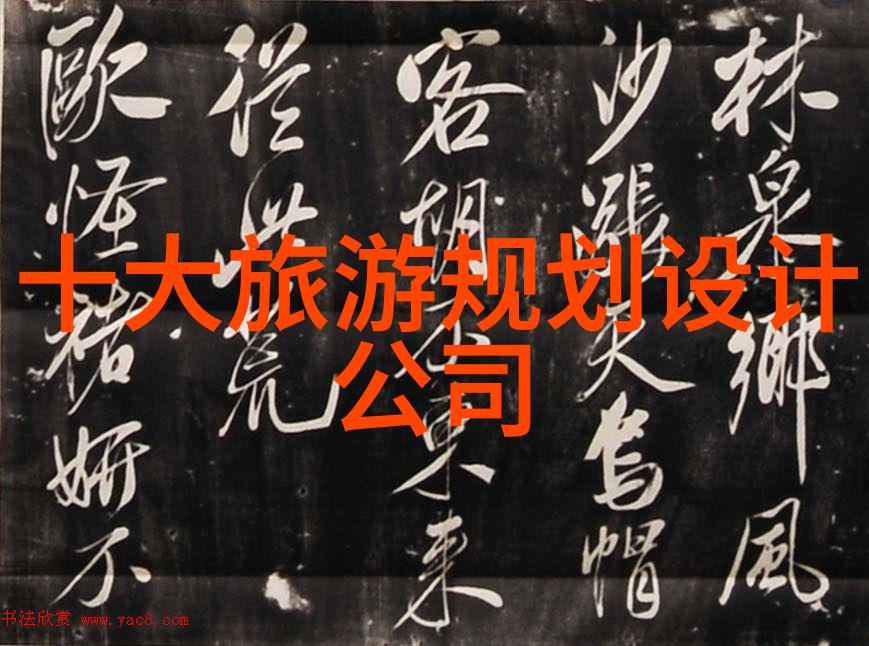 十大旅游规划设计
公司
林泉鄉風
沙漲天烏帽
客胡來
荒
歐怪褚妍不
书法欣赏 www.yac8.com